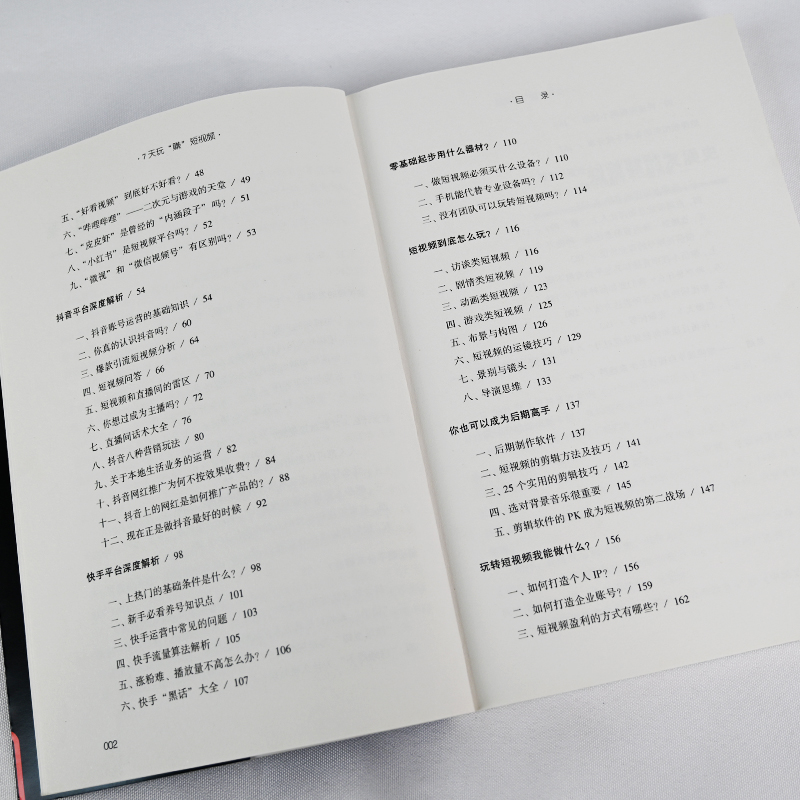 ·7天玩“赚”短视频·
五、“好看视频”到底好不好看? / 48
六、“哔哩哔哩”——二次元与游戏的天堂 / 49
七、“皮皮虾”是曾经的“内涵段子”吗? / 51
八、“小红书”是短视频平台吗? / 52
九、“微视”和“微信视频号”有区别吗? / 53
抖音平台深度解析 / 54
一、抖音账号运营的基础知识 / 54
二、你真的认识抖音吗? / 60
三、爆款引流短视频分析 / 64
四、短视频问答 / 66
五、短视频和直播间的雷区 / 70
六、你想过成为主播吗? / 72
七、直播间话术大全 / 76
八、抖音八种营销玩法 / 80
九、关于本地生活业务的运营 / 82
十、抖音网红推广为何不按效果收费? / 84
十一、抖音上的网红是如何推广产品的? / 88
十二、现在正是做抖音最好的时候 / 92
快手平台深度解析 / 98
一、上热门的基础条件是什么? / 98
二、新手必看养号知识点 / 101
三、快手运营中常见的问题 / 103
四、快手流量算法解析 / 105
五、涨粉难、播放量不高怎么办? / 106
六、快手“黑话”大全 / 107
002
·目 录·
零基础起步用什么器材? / 110
一、做短视频必须买什么设备? / 110
二、手机能代替专业设备吗? / 112
三、没有团队可以玩转短视频吗? / 114
短视频到底怎么玩? / 116
一、访谈类短视频 / 116
二、剧情类短视频 / 119
三、动画类短视频 / 123
四、游戏类短视频 / 125
五、布景与构图 / 126
六、短视频的运镜技巧 / 129
七、景别与镜头 / 131
八、导演思维 / 133
你也可以成为后期高手 / 137
一、后期制作软件 / 137
二、短视频的剪辑方法及技巧 / 141
三、25个实用的剪辑技巧 / 142
四、选对背景音乐很重要 / 145
五、剪辑软件的PK成为短视频的第二战场 / 147
玩转短视频我能做什么? / 156
一、如何打造个人IP? / 156
二、如何打造企业账号? / 159
三、短视频盈利的方式有哪些? / 162